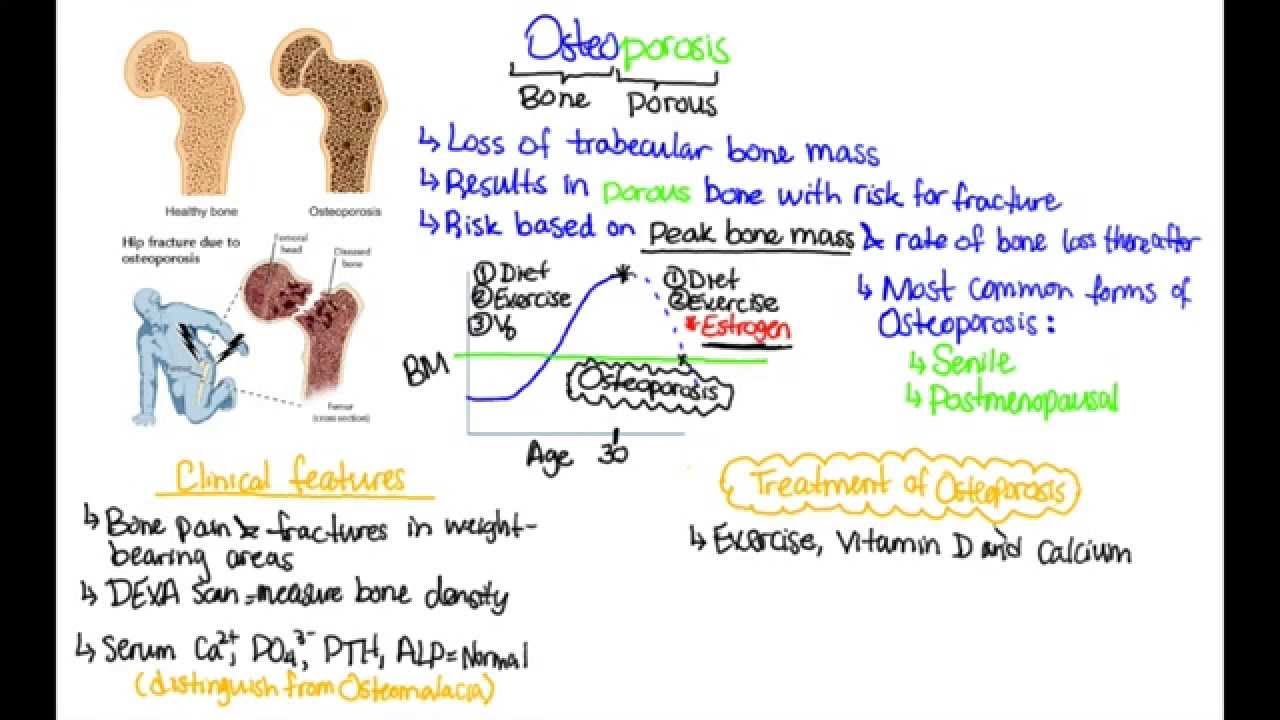 Osteoporosis
Bone Porous
↳ Loss of trabecular bone mass
↳ Results in porous bone with risk for fracture
↳ Risk based on Peak bone mass & rate of bone loss thereafter
Healthy bone
Osteoporosis
Hip fracture due to
osteoporosis
Femoral
head
Diseased
bone
Femur
Femur
(cross section)
① Diet
② Exercise
③
① Diet
② Exercise
* Estrogen
BM
Osteoporosis
Age 30
↳ Most common forms of
Osteoporosis:
↳ Senile
↳ Postmenopausal
Clinical features
↳ Bone pain & fractures in weight-
bearing areas
↳ DEXA scan = measure bone density
↳ Serum Ca²⁺, PO₄³⁻, PTH, ALP = Normal
(distinguish from Osteomalacia)
Treatment of Osteoporosis
↳ Exercise, Vitamin D and Calcium